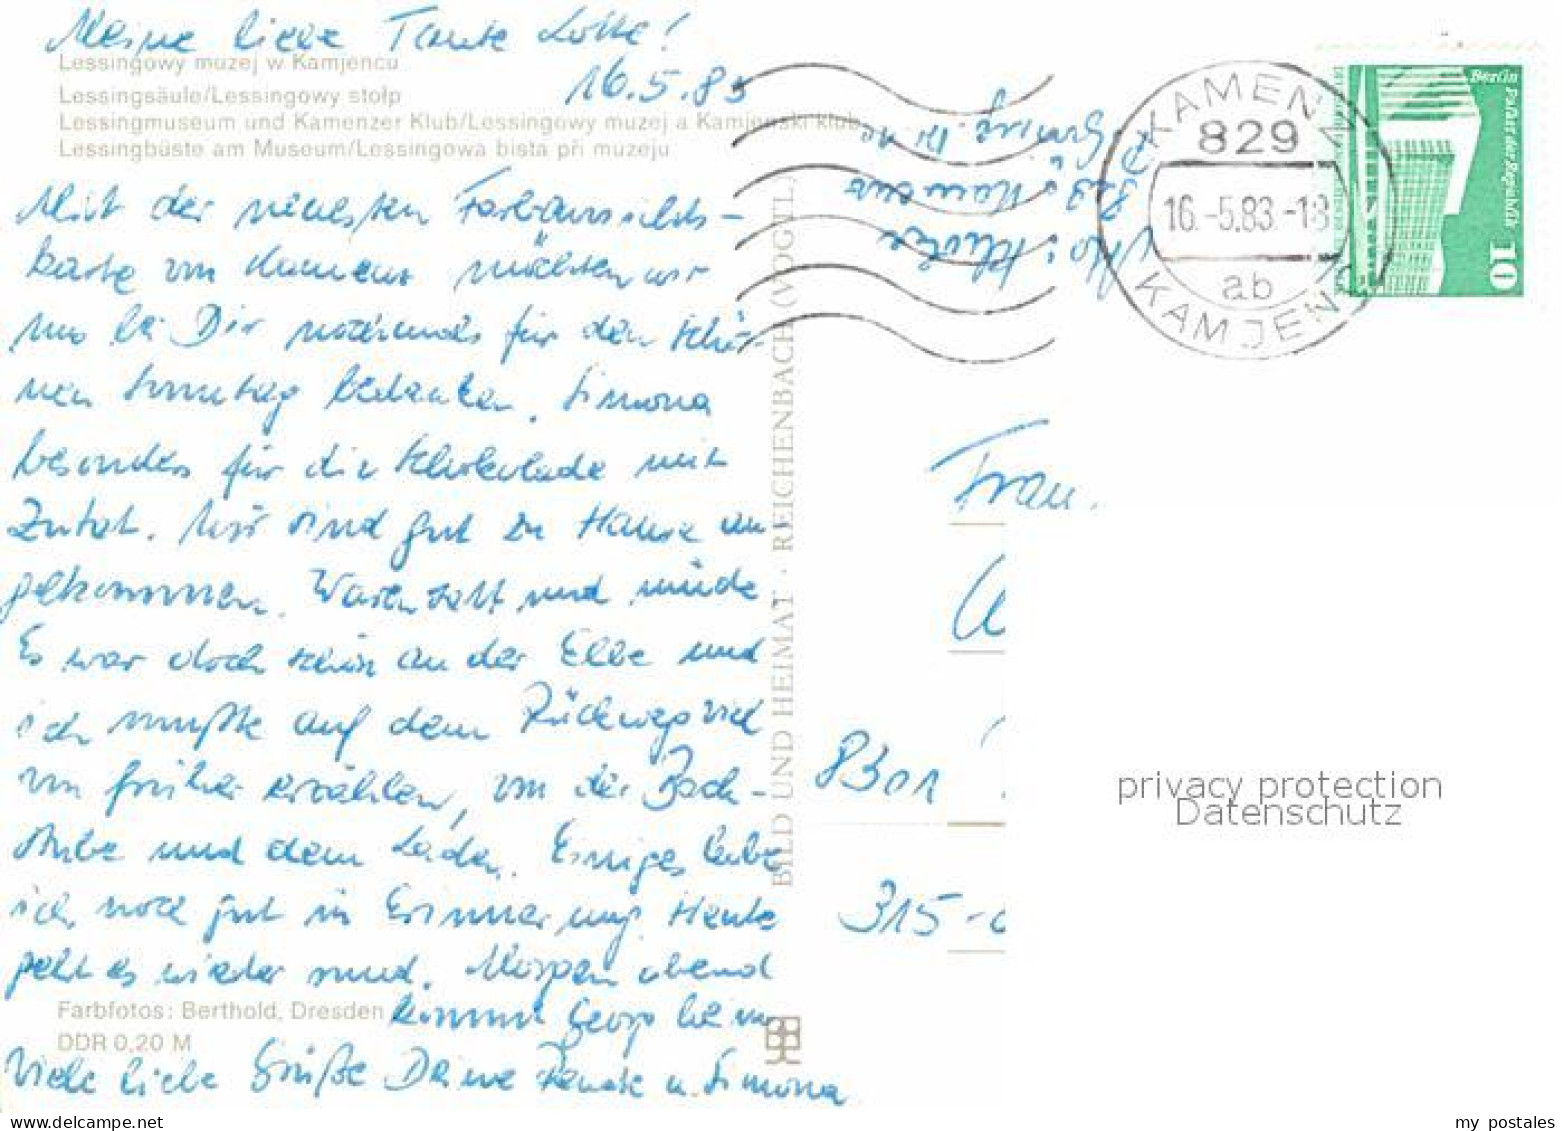 Meine liebe Tante Lotte!
Lessingowy muzej w Kamjencu
16.5.83
Lessingsäule/Lessingowy stołp
Lessingmuseum und Kamenzer Klub/Lessingowy muzej a Kamjenski klub
Lessingbüste am Museum/Lessingowa bista při muzeju
Mit der neuesten Farbansichts-
karte von Kamenz möchten wir
uns bei Dir nochmals für den schö-
nen Sonntag bedanken. Simona
besonders für die Schokolade mit
Zutat. Wir sind gut zu Hause an
gekommen. Waren satt und müde
Es war doch schön an der Elbe und
ich mußte auf dem Rückweg viel
von früher erzählen, von der Back-
stube und dem Laden. Einiges habe
ich noch gut in Erinnerung. Heute
geht es wieder rund. Morgen abend
Farbfotos: Berthold, Dresden
kommt Georg heim
DDR 0,20 M
Viele liebe Grüße Deine Renate u. Simona
BILD UND HEIMAT · REICHENBACH (VOGTL)
829 Kamenz
KAMENZ
829
16.-5.83.-18
ab
KAMJENC
Berlin Palast der Republik
10
Frau
8301
315-
privacy protection
Datenschutz
my postales